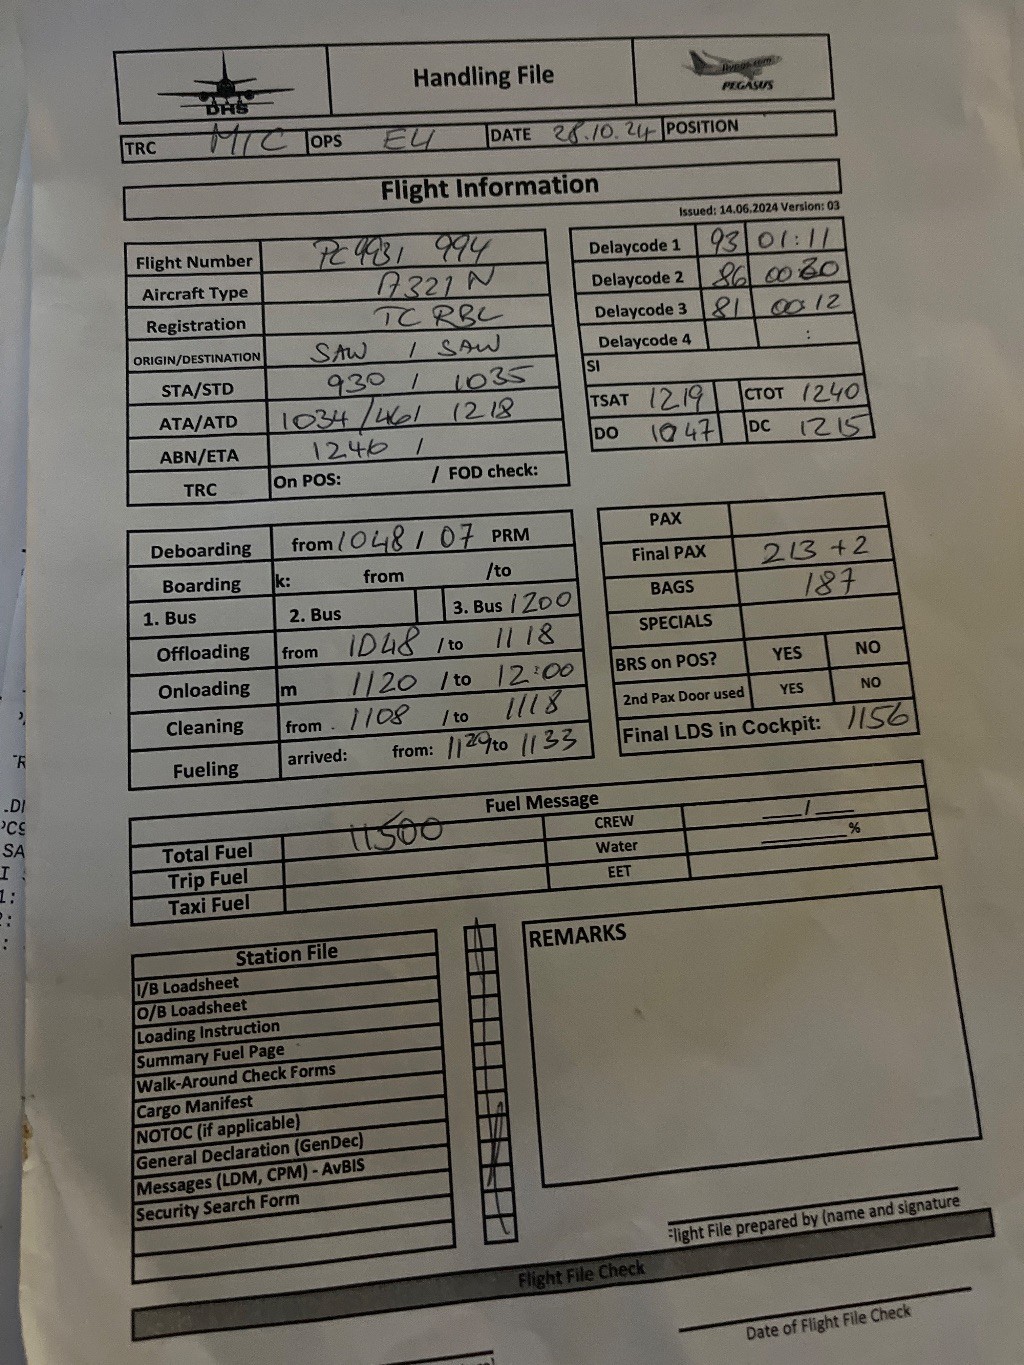 DHS
Handling File
flypgs.com
PEGASUS
TRC MIC OPS EU DATE 28.10.24 POSITION
Flight Information
Issued: 14.06.2024 Version: 03
Flight Number PC 993/ 994
Aircraft Type A321N
Registration TC RBL
ORIGIN/DESTINATION SAW / SAW
STA/STD 930 / 1035
ATA/ATD 1034/461 1218
ABN/ETA 1246 /
TRC On POS: / FOD check:
Delaycode 1 93 01:11
Delaycode 2 86
Delaycode 3 81 00:12
Delaycode 4 :
SI
TSAT 1219 CTOT 1240
DO 1047 DC 1215
Deboarding from 1048 / 07 PRM
Boarding k: from /to
1. Bus 2. Bus 3. Bus 1200
Offloading from 1048 / to 1118
Onloading m 1120 / to 12:00
Cleaning from 1108 / to 1118
Fueling arrived: from: 1129 to 1133
PAX
Final PAX 213 +2
BAGS 187
SPECIALS
BRS on POS? YES NO
2nd Pax Door used YES NO
Final LDS in Cockpit: 1156
Fuel Message
Total Fuel 11500 CREW /
Trip Fuel Water %
Taxi Fuel EET
Station File
I/B Loadsheet
O/B Loadsheet
Loading Instruction
Summary Fuel Page
Walk-Around Check Forms
Cargo Manifest
NOTOC (if applicable)
General Declaration (GenDec)
Messages (LDM, CPM) - AvBIS
Security Search Form
REMARKS
Flight File prepared by (name and signature
Flight File Check
Date of Flight File Check